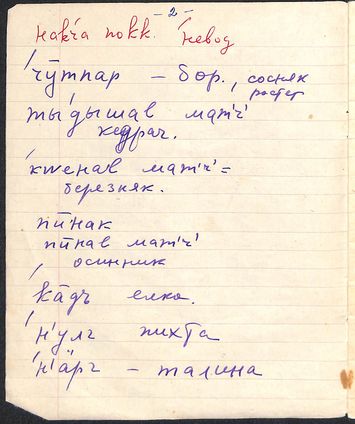 - 2 -
на́кча покк. не́вод
чӯ́тпар – бор., сосняк
растет
ты́дышав мат'ч'
кедрач.
кwенав мат'ч' =
березняк.
пӣнак
пӣнав мат'ч'
осинник
ка̄дъ елка.
н'улг пихта
н'ӓрг – талина